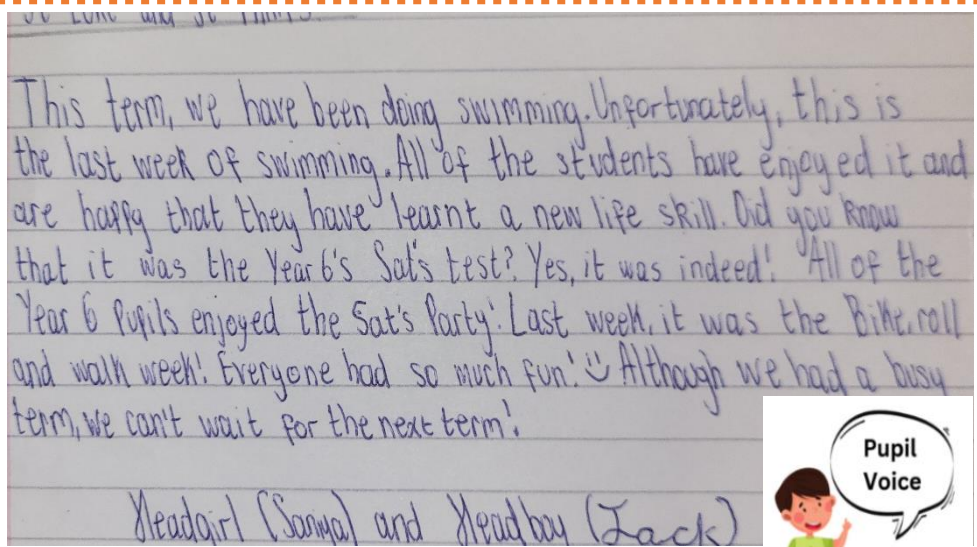 This term, we have been doing swimming. Unfortunately, this is
the last week of swimming. All of the students have enjoyed it and
are happy that they have learnt a new life skill. Did you know
that it was the Year 6's Sat's test? Yes, it was indeed! All of the
Year 6 Pupils enjoyed the Sat's Party! Last week, it was the Bike, roll
and walk week! Everyone had so much fun! Although we had a busy
term, we can't wait for the next term!
Headgirl (Saniya) and Headboy (Jack)
Pupil
Voice